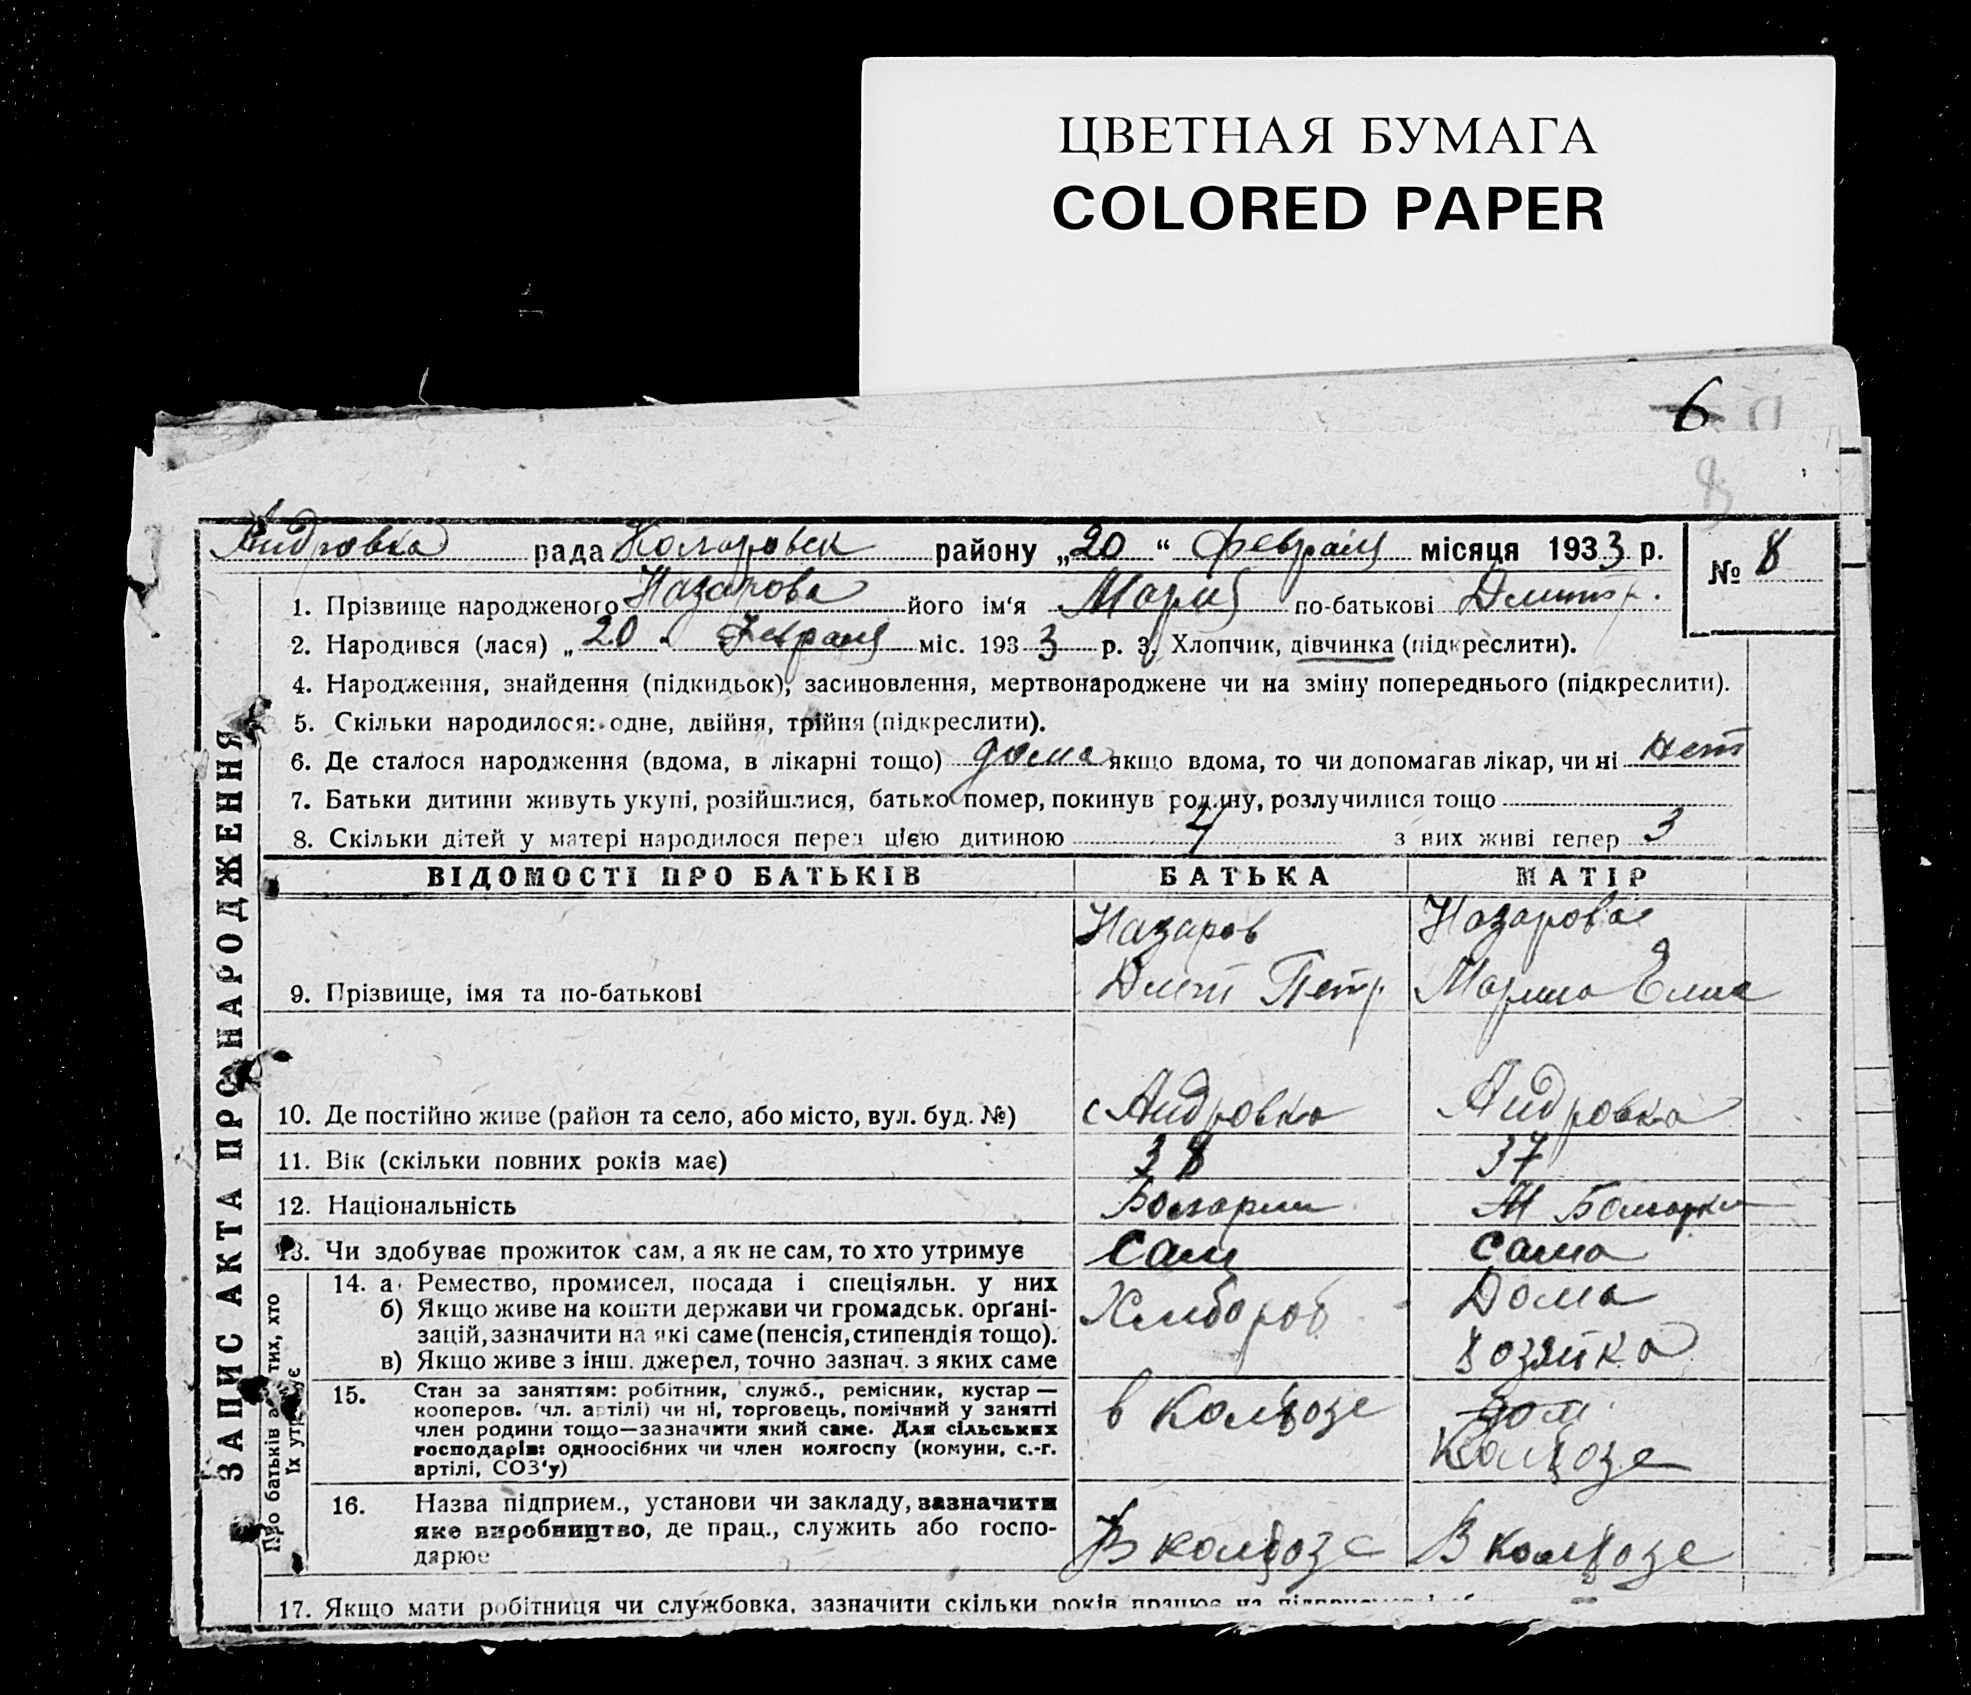 ЦВЕТНАЯ БУМАГА
COLORED PAPER
6
8
Андровка рада Коларовск району „20“ февраля місяця 1933 р.
№ 8
1. Прізвище народженого Назарова його ім'я Мария по-батькові Дмитр.
2. Народився (лася) „20 „ февраля міс. 1933 р. 3. Хлопчик, дівчинка (підкреслити).
4. Народження, знайдення (підкидьок), засиновлення, мертвонароджене чи на зміну попереднього (підкреслити).
5. Скільки народилося: одне, двійня, трійня (підкреслити).
6. Де сталося народження (вдома, в лікарні тощо) дома якщо вдома, то чи допомагав лікар, чи ні нет
7. Батьки дитини живуть укупі, розійшлися, батько помер, покинув родину, розлучилися тощо
8. Скільки дітей у матері народилося перед цією дитиною 4 з них живі тепер 3
ЗАПИС АКТА ПРО НАРОДЖЕННЯ
ВІДОМОСТІ ПРО БАТЬКІВ БАТЬКА МАТІР
Назаров Назарова
9. Прізвище, імя та по-батькові Дмит Петр. Марина
10. Де постійно живе (район та село, або місто, вул. буд. №) с Андровка Андровка
11. Вік (скільки повних років має) 38 37
12. Національність Болгарин Болгарка
13. Чи здобуває прожиток сам, а як не сам, то хто утримує сам сама
Про батьків а тих, хто їх утримує
14. а) Ремество, промисел, посада і спеціяльн. у них Хлибороб Дома
б) Якщо живе на кошти держави чи громадськ. органі-
зацій, зазначити на які саме (пенсія, стипендія тощо).
в) Якщо живе з інш. джерел, точно зазнач. з яких саме хозяйка
15. Стан за заняттям: робітник, служб., ремісник, кустар — в колхозе дом
кооперов. (чл. артілі) чи ні, торговець, помічний у занятті
член родини тощо—зазначити який саме. Для сільських колхозе
господарів: одноосібних чи член колгоспу (комуни, с.-г.
артілі, СОЗ'у)
16. Назва підприєм., установи чи закладу, зазначити
яке виробництво, де прац., служить або госпо- В колхозе В колхозе
дарює
17. Якщо мати робітниця чи службовка, зазначити скільки років працює на